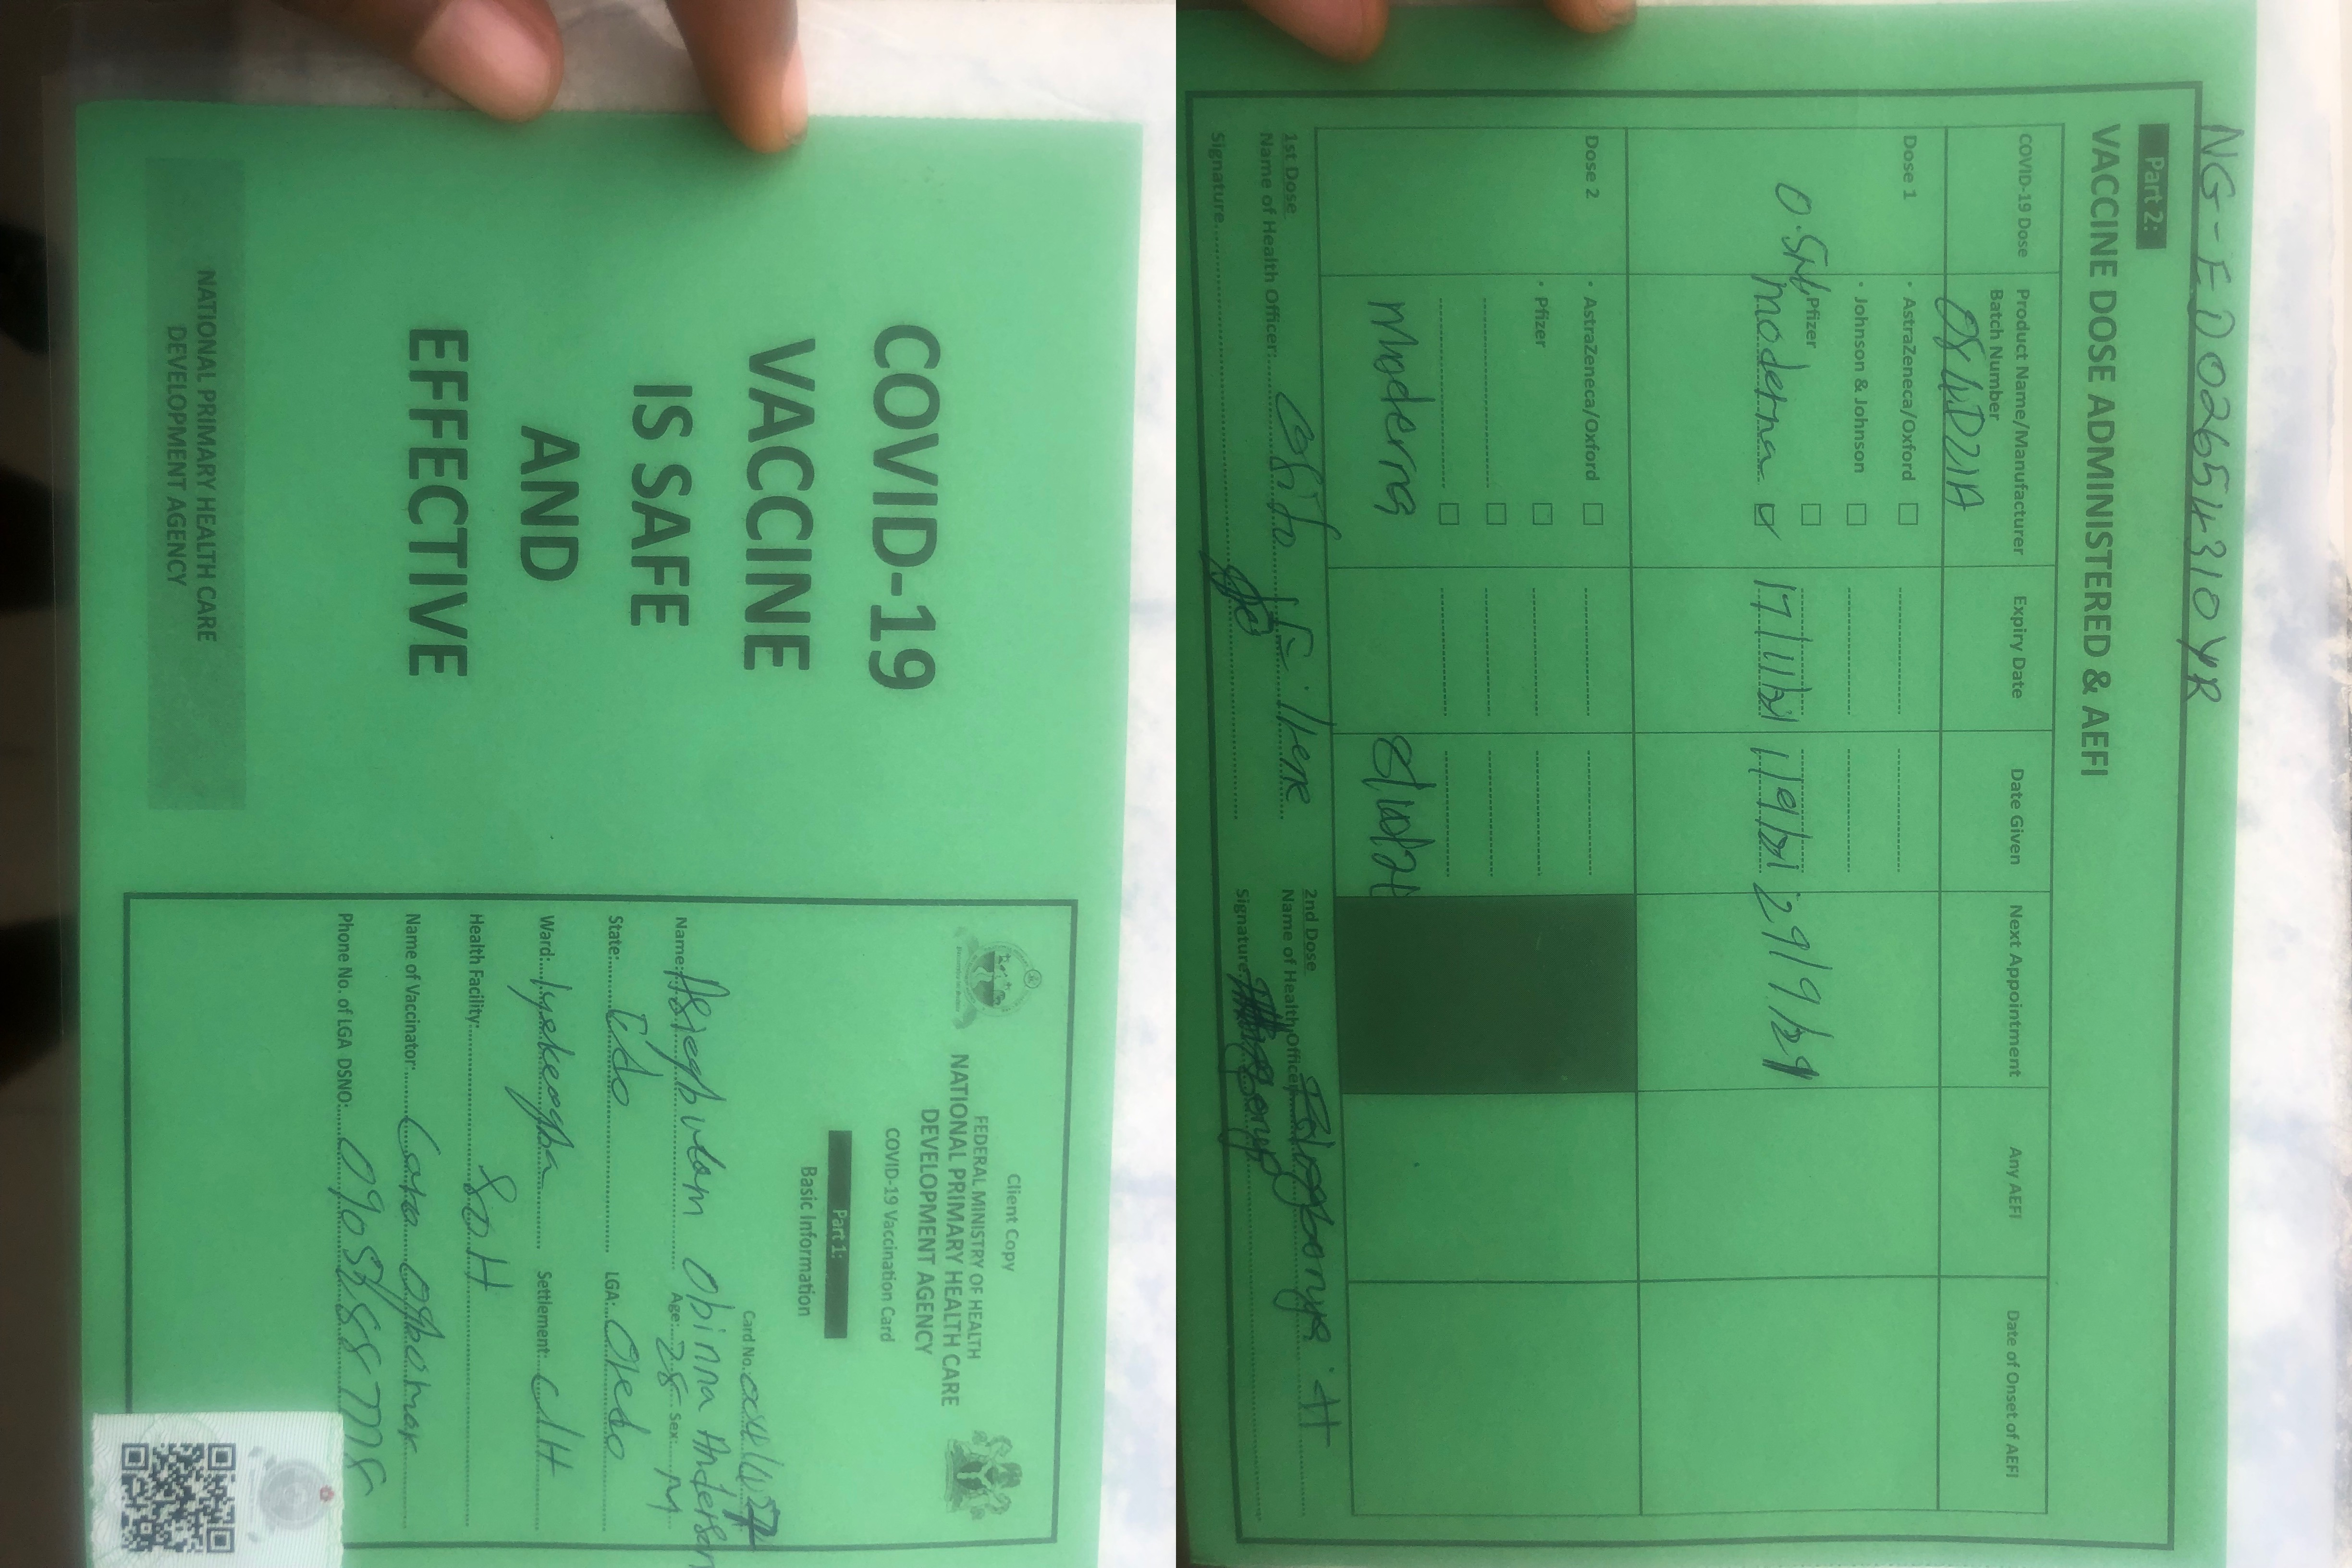 COVID-19
VACCINE
IS SAFE
AND
EFFECTIVE
NATIONAL PRIMARY HEALTH CARE
DEVELOPMENT AGENCY
Client Copy
FEDERAL MINISTRY OF HEALTH
NATIONAL PRIMARY HEALTH CARE
DEVELOPMENT AGENCY
COVID-19 Vaccination Card
Part 1:
Basic Information
Card No.
Name: Obinna Anderson
Age: 28 Sex: M
State: Edo LGA: Oredo
Ward: Settlement:
Health Facility: SDH
Name of Vaccinator:
Phone No. of LGA DSNO:
NG-ED02654310YR
Part 2:
VACCINE DOSE ADMINISTERED & AEFI
COVID-19 Dose
Product Name/Manufacturer
Batch Number
Expiry Date
Date Given
Next Appointment
Any AEFI
Date of Onset of AEFI
Dose 1
• AstraZeneca/Oxford
• Johnson & Johnson
• Pfizer
Moderna 17/11/21 1/9/21 29/9/21
Dose 2
• AstraZeneca/Oxford
• Pfizer
Moderna
1st Dose
Name of Health Officer:
Signature
2nd Dose
Name of Health Officer
Signature